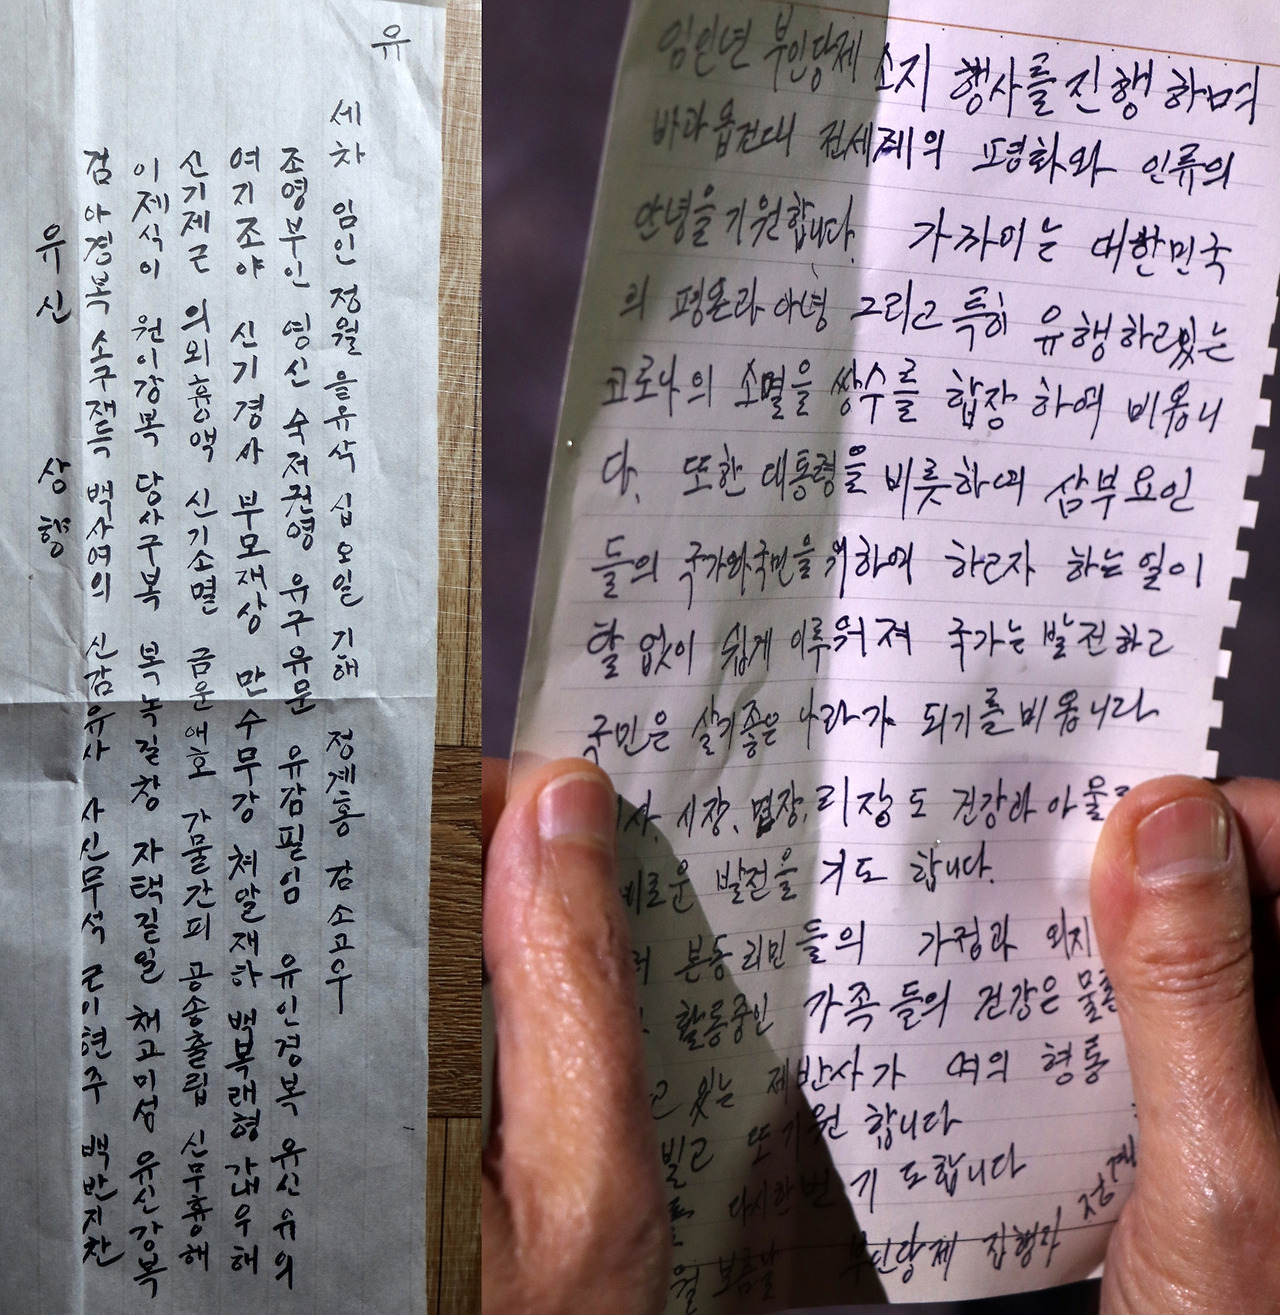 유
세차 임인 정월 을유삭 십오일 기해 정계홍 감소고우
조영부인 영신 숙저권영 유구유문 유감필임 유인경복 유신유의
여지조야 신기경사 부모재상 만수무강 처알재하 백복래형 가내우해
신기제근 의외흉액 신기소멸 금운애호 가물간피 공송출립 신무흉해
이제식이 원이강복 당사구복 복녹길창 자택길월 채고미섬 유신강복
검아경복 소구재득 백사여의 신감유사 사신무석 근이현주 백반지찬
유신 상행
임인년 부인당제 소지 행사를 진행하며
바라옵건대 전세계의 평화와 인류의
안녕을 기원합니다. 가까이는 대한민국
의 평온과 안녕 그리고 특히 유행하고있는
코로나의 소멸을 쌍수를 합장 하여 비옵니
다. 또한 대통령을 비롯하여 삼부요인
들의 국가와국민을 위하여 하고자 하는 일이
탈 없이 쉽게 이루워져 국가는 발전하고
국민은 살기좋은 나라가 되기를 비옵니다
시장, 면장, 리장도 건강과 아울러
발전을 기도 합니다.
본동리민들의 가정과 외지
활동중인 가족들의 건강은 물론
있는 제반사가 여의 형통
빌고 또 기원 합니다
다시한번 기도합니다
보름날 부인당제 집행자